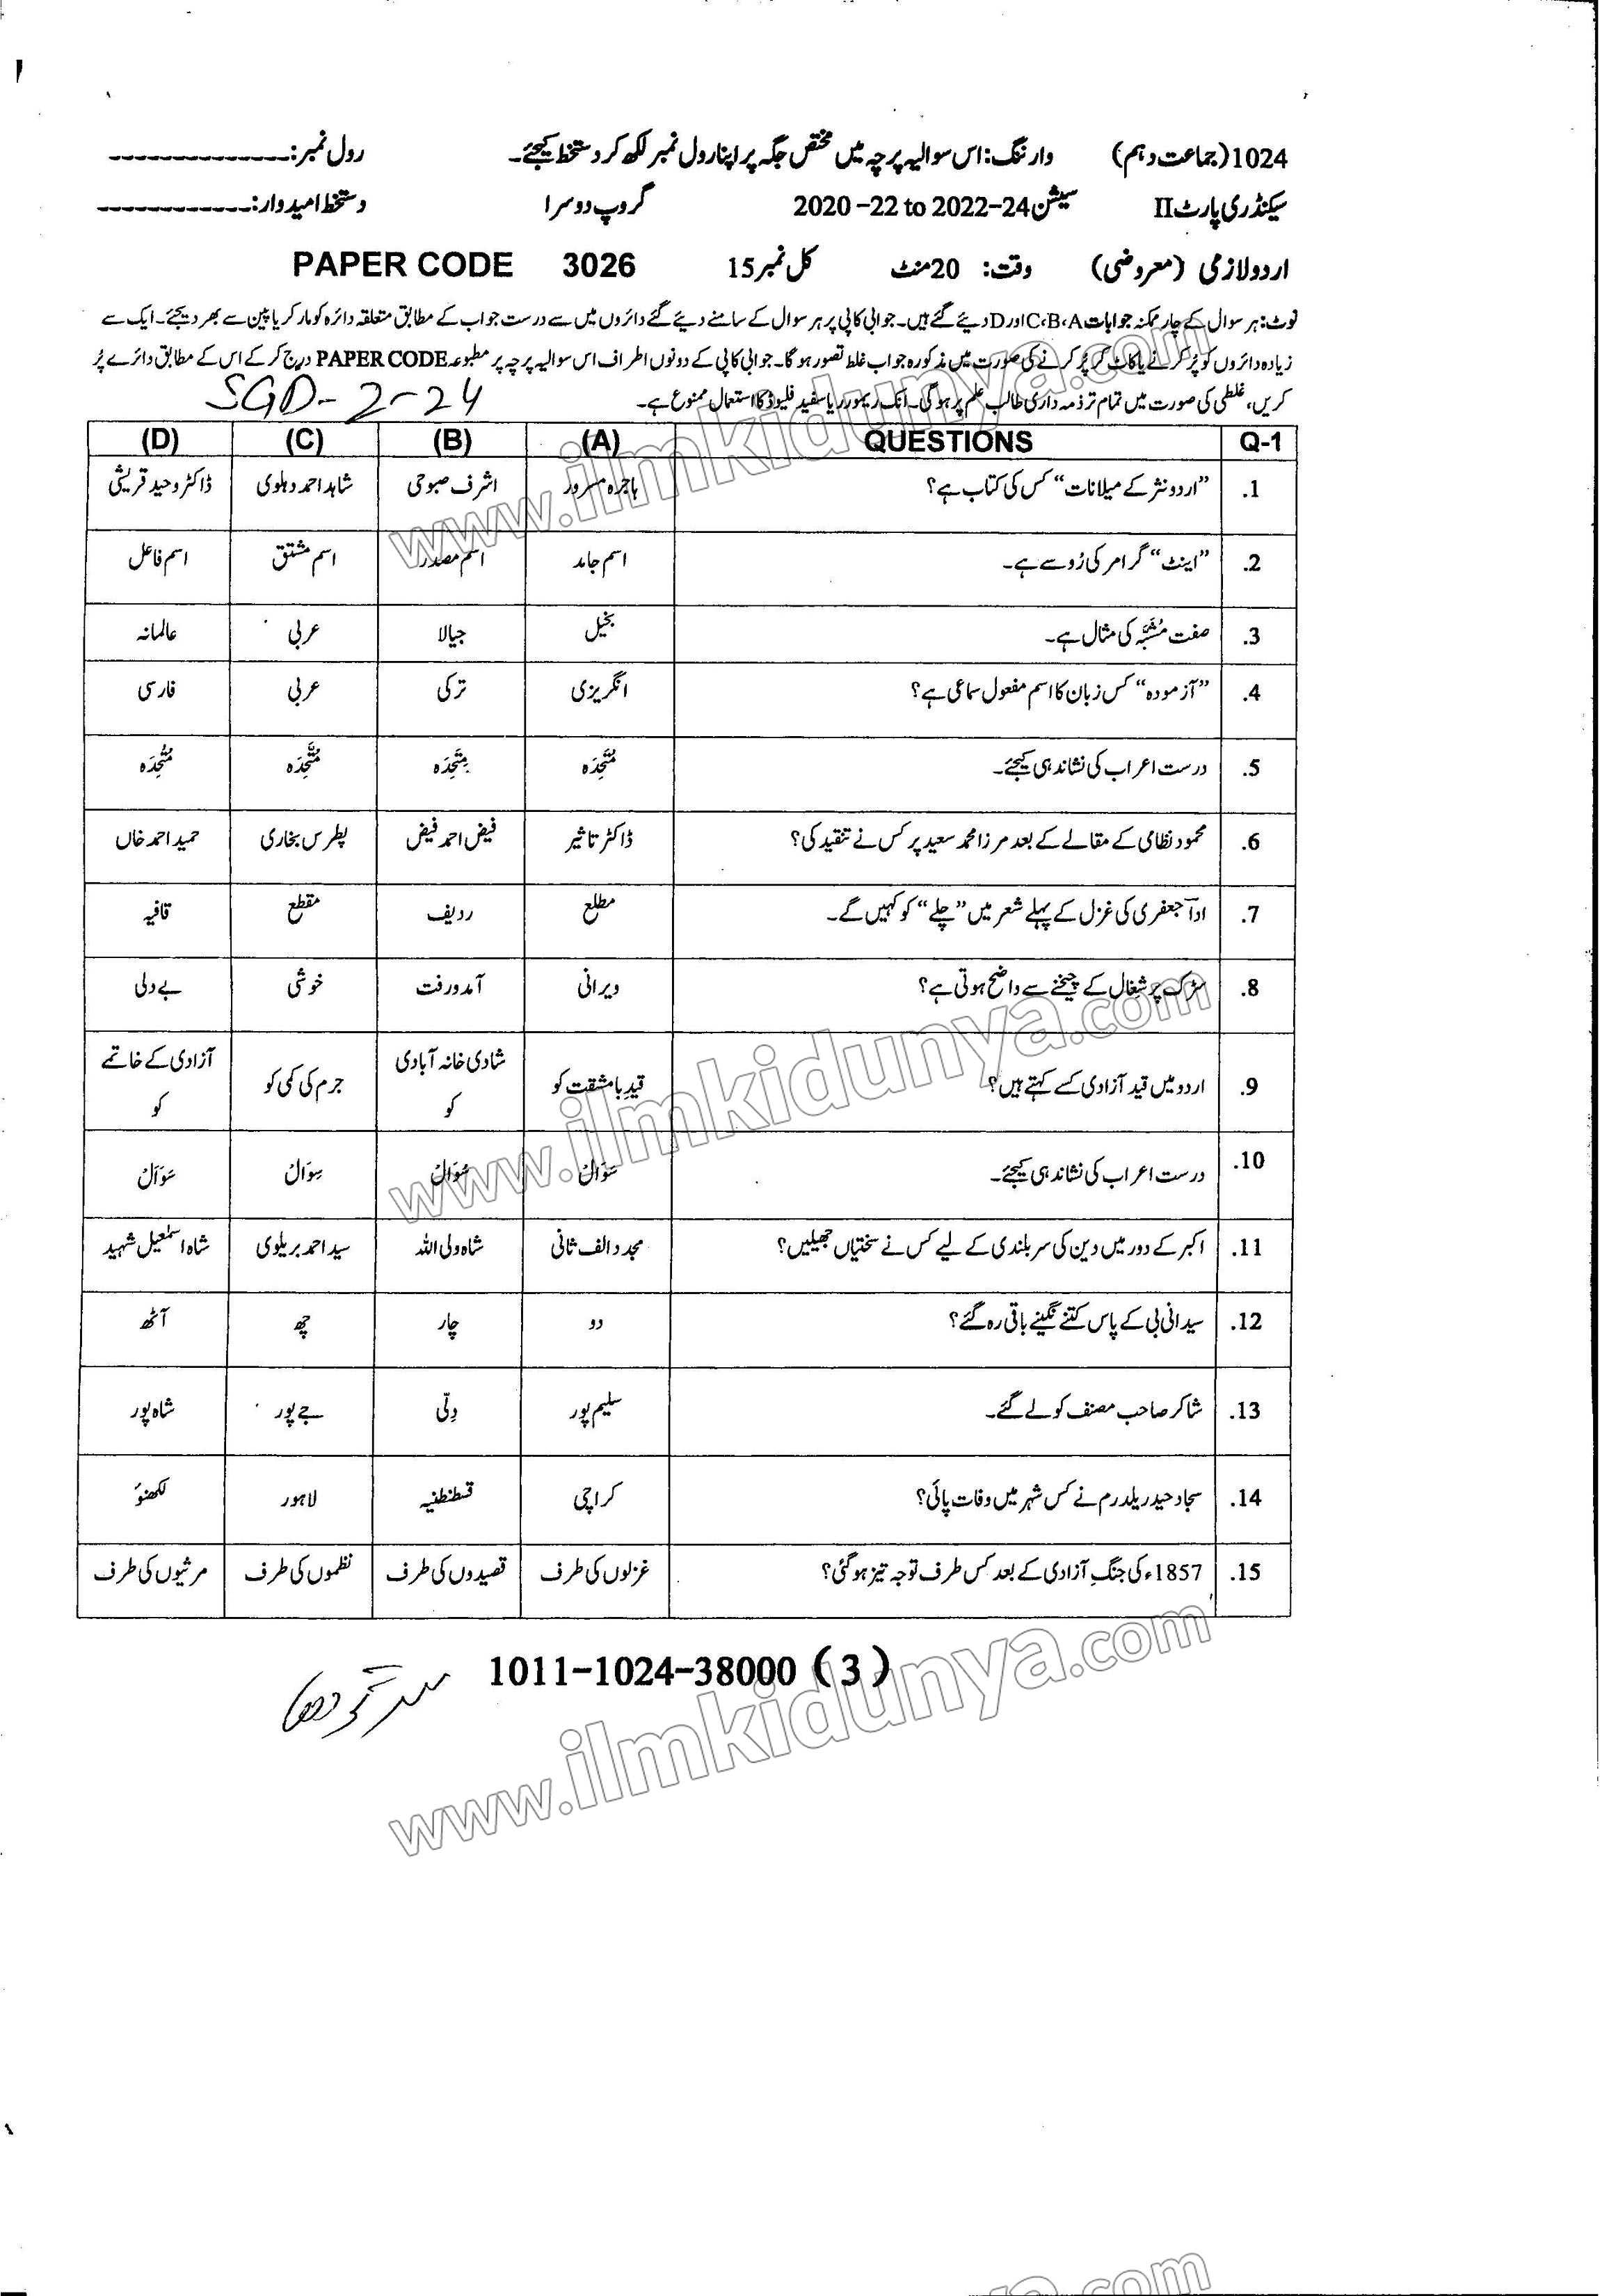 1024(جماعت دہم) وارننگ: اس سوالیہ پرچہ میں مختص جگہ پر اپنا رول نمبر لکھ کر دستخط کیجئے۔ رول نمبر: _ _ _ _ _ _ _ _ _ _ _ _ _
سیکنڈری پارٹ II سیشن 2020 -22 to 2022-24 گروپ دوسرا دستخط امیدوار: _ _ _ _ _ _ _ _ _ _ _ _ _
اردو لازمی (معروضی) وقت: 20 منٹ کل نمبر 15 PAPER CODE 3026
نوٹ: ہر سوال کے چار ممکنہ جوابات C،B،A اور D دیئے گئے ہیں۔ جوابی کاپی پر ہر سوال کے سامنے دیئے گئے دائروں میں سے درست جواب کے مطابق متعلقہ دائرہ کو مارکر یا پین سے بھر دیجئے۔ ایک سے
زیادہ دائروں کو پُر کرنے یا کاٹ کر پُر کرنے کی صورت میں مذکورہ جواب غلط تصور ہو گا۔ جوابی کاپی کے دونوں اطراف اس سوالیہ پرچہ پر مطبوعہ PAPER CODE درج کر کے اس کے مطابق دائرے پُر
کریں، غلطی کی صورت میں تمام تر ذمہ داری طالب علم پر ہو گی۔ انک ریمور یا سفید فلیوڈ کا استعمال ممنوع ہے۔ SGD-2-24
Q-1 QUESTIONS (A) (B) (C) (D)
1. ”اردو نثر کے میلانات“ کس کی کتاب ہے؟ ہاجرہ مسرور اشرف صبوحی شاہد احمد دہلوی ڈاکٹر وحید قریشی
2. ”اینٹ“ گرامر کی رُو سے ہے۔ اسم جامد اسم مصدر اسم مشتق اسم فاعل
3. صفت مُشبّہ کی مثال ہے۔ بخیل جیالا عربی عالمانہ
4. ”آزمودہ“ کس زبان کا اسم مفعول سماعی ہے؟ انگریزی ترکی عربی فارسی
5. درست اعراب کی نشاندہی کیجئے۔
6. محمود نظامی کے مقالے کے بعد مرزا محمد سعید پر کس نے تنقید کی؟ ڈاکٹر تاثیر فیض احمد فیض پطرس بخاری حمید احمد خاں
7. ادؔا جعفری کی غزل کے پہلے شعر میں ”چلے“ کو کہیں گے۔ مطلع ردیف مقطع قافیہ
8. سڑک پر شغال کے چیخنے سے واضح ہوتی ہے؟ ویرانی آمدورفت خوشی بے دلی
9. اردو میں قید آزادی کسے کہتے ہیں؟ قیدِ بامشقت کو شادی خانہ آبادی کو جرم کی کمی کو آزادی کے خاتمے کو
10. درست اعراب کی نشاندہی کیجئے۔
11. اکبر کے دور میں دین کی سربلندی کے لیے کس نے سختیاں جھیلیں؟ مجدد الف ثانی شاہ ولی اللہ سید احمد بریلوی شاہ اسمٰعیل شہید
12. سیدانی بی کے پاس کتنے نگینے باقی رہ گئے؟ دو چار چھ آٹھ
13. شاکر صاحب مصنف کو لے گئے۔ سلیم پور دِلّی جے پور شاہ پور
14. سجاد حیدر یلدرم نے کس شہر میں وفات پائی؟ کراچی قسطنطنیہ لاہور لکھنؤ
15. 1857ء کی جنگِ آزادی کے بعد کس طرف توجہ تیز ہو گئی؟ غزلوں کی طرف قصیدوں کی طرف نظموں کی طرف مرثیوں کی طرف
1011-1024-38000 (3)
سرگودھا
www.ilmkidunya.com
www.ilmkidunya.com
www.ilmkidunya.com